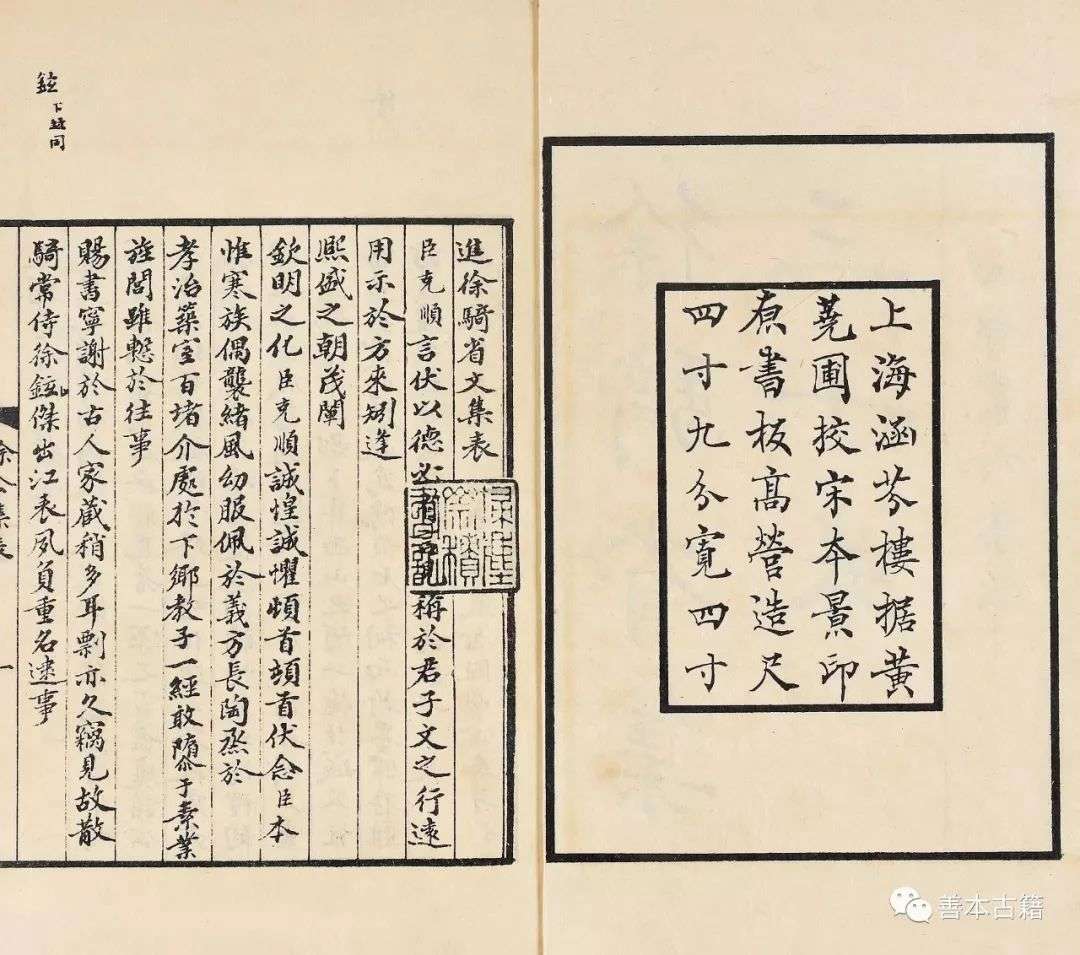 上海涵芬樓据黃
蕘圃挍宋本景印
原書板高營造尺
四寸九分寬四寸
進徐騎省文集表
臣克順言伏以德必稱於君子文之行遠
用示於方來矧逢
熙盛之朝茂闡
欽明之化臣克順誠惶誠懼頓首頓首伏念臣本
惟寒族偶襲緒風幼服佩於義方長陶烝於
孝治築室百堵介處於下鄉教子一經敢隳于素業
旌閭雖慙於往事
賜書寧謝於古人家藏稍多耳剽亦久竊見故散
騎常侍徐鉉傑出江表夙負重名逮事
鉉
下並同
一
善本古籍